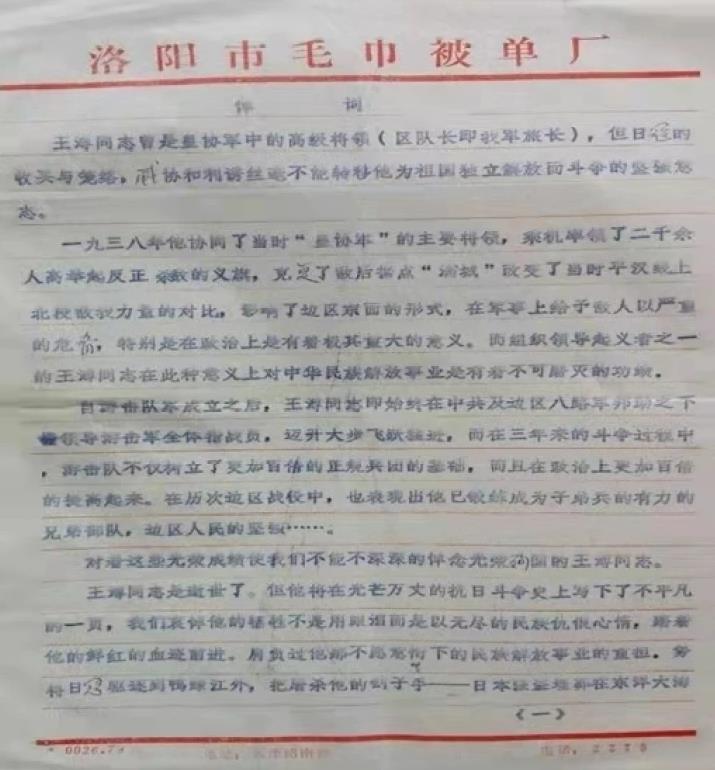 洛阳市毛巾被单厂
悼 词
王涛同志曾是皇协军中的高级将领（区队长即我军旅长），但日寇的
收买与笼络，威协和利诱丝毫不能转移他为祖国独立解放而斗争的坚强意
志。
一九三八年他协同了当时“皇协军”的主要将领，乘机率领了二千余
人高举起反正 的义旗，克复了敌后据点“ 城”改变了当时平汉线上
北段敌我力量的对比，影响了边区东面的形式，在军事上给予敌人以严重
的危 ，特别是在政治上是有着极其重大的意义。而组织领导起义者之一
的王涛同志在此种意义上对中华民族解放事业是有着不可磨灭的功绩。
自游击队军成立之后，王涛同志即始终在中共及边区八路军帮助之下
领导游击军全体指战员，迈开大步飞跃猛进，而在三年来的斗争过程中
，游击队不仅树立了更加百倍的正规兵团的基础，而且在政治上更加百倍
的提高起来。在历次边区战役中，也表现出他已锻练成为子弟兵的有力的
兄弟部队，边区人民的坚强……。
对着这些光荣成绩使我们不能不深深的怀念光荣殉国的王涛同志。
王涛同志是逝世了。但他将在光芒万丈的抗日斗争史上写下了不平凡
的一页，我们哀悼他的牺牲不是用眼泪而是以无尽的民族仇恨心情，踏着
他的鲜红的血迹前进。肩负过他那不愿意 下的民族解放事业的重担，务
将日寇驱逐到鸭绿江外，把屠杀他的刽子手——日本强盗埋葬在东洋大海
（一）
0026.7
电话：2276